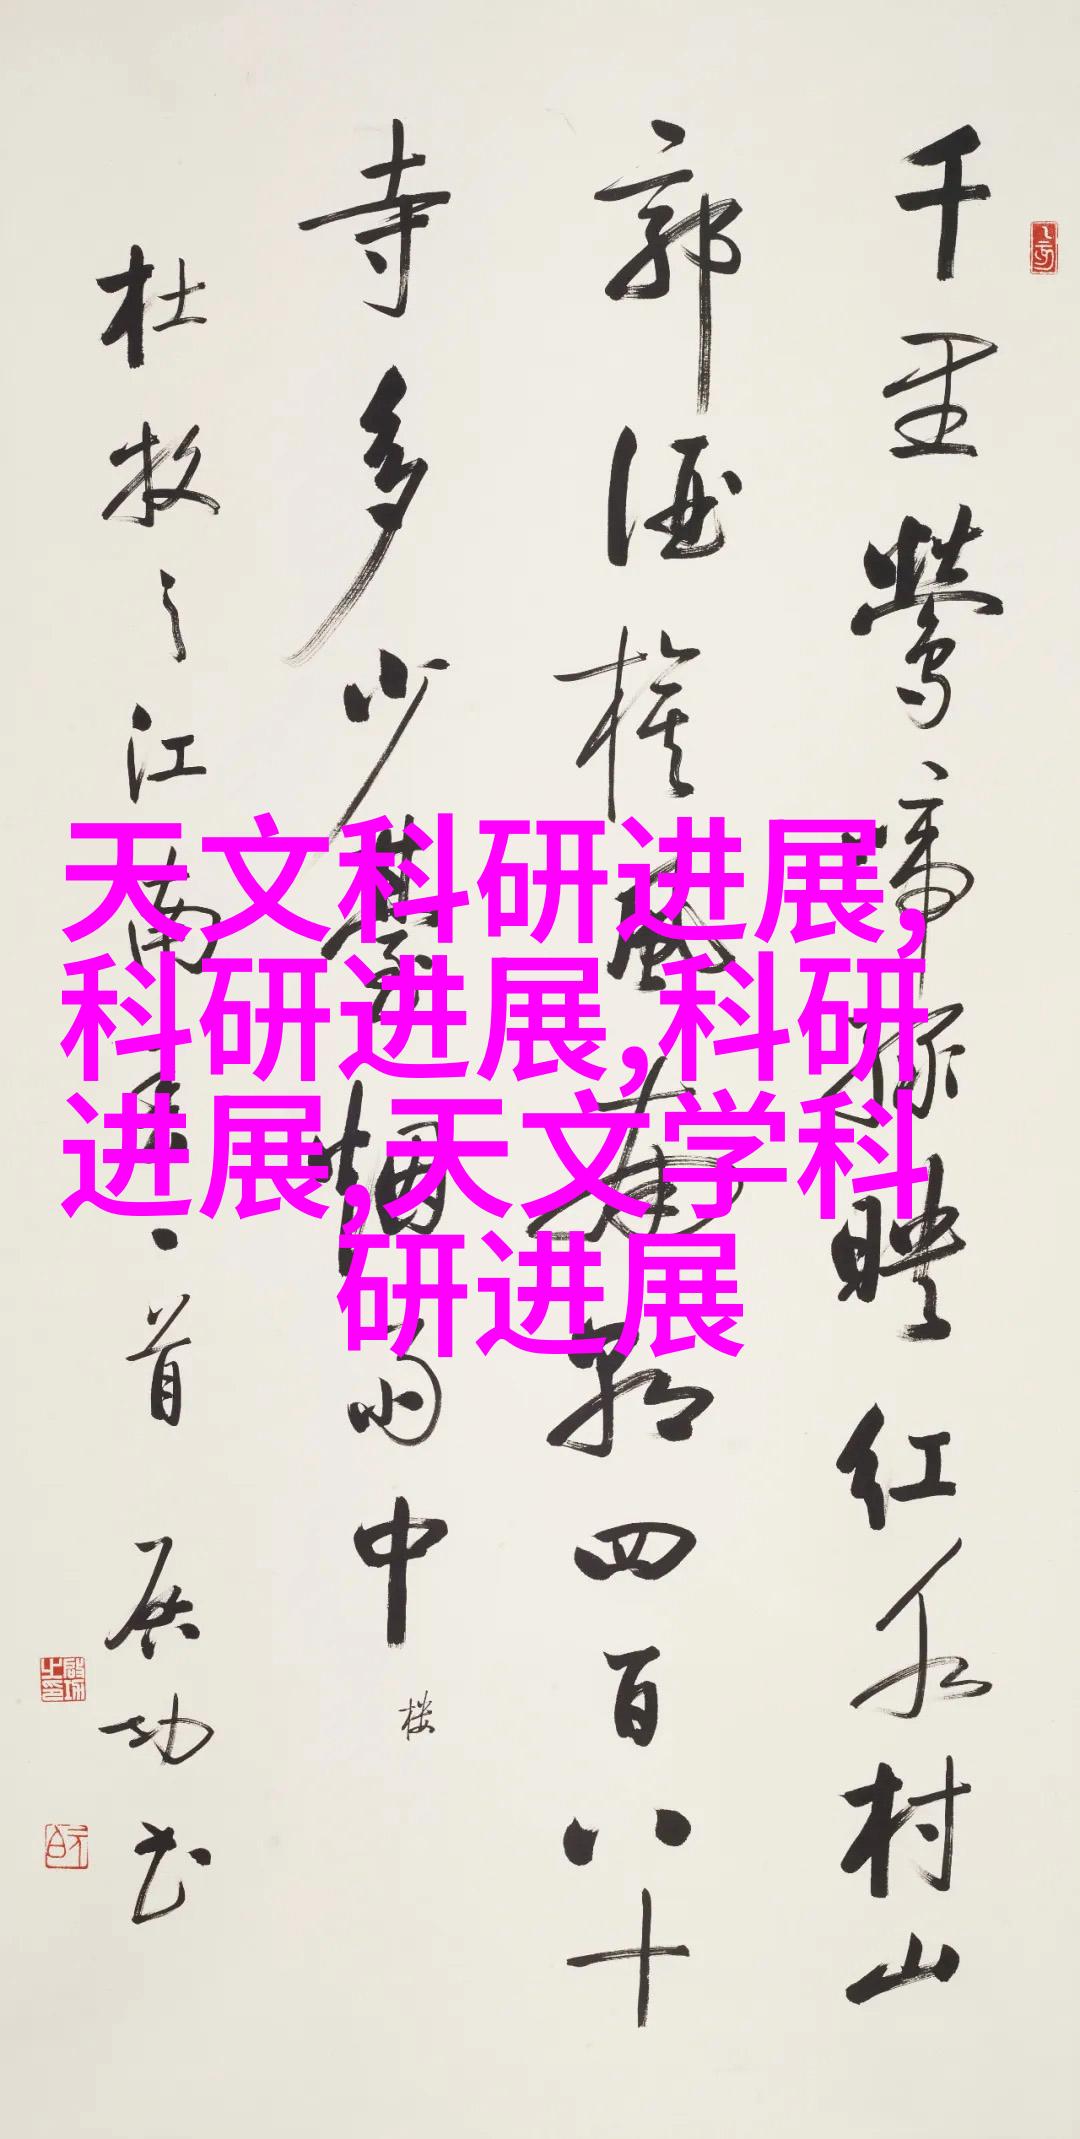 千里鶯啼绿映红水村山
郭酒旗風南朝四百八十
寺多少臺烟雨中
楼
杜牧之江南春一首 启功书
天文科研进展,
科研进展,科研
进展,天文学科
研进展